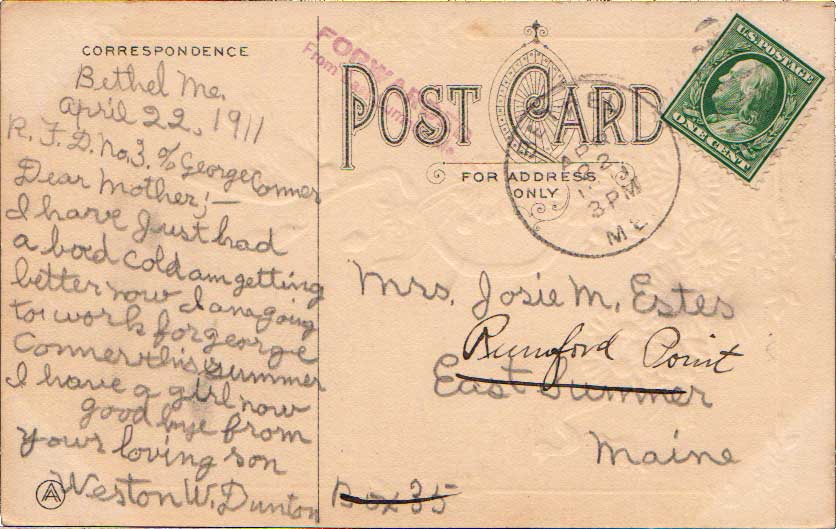 CORRESPONDENCE
Bethel Me.
April 22, 1911
R. F. D. No. 3. c/o George Conner
Dear Mother; —
I have Just had
a bad cold am getting
better now I am going
to work for george
Conner this summer
I have a girl now
good bye from
your loving son
Weston W. Dunton
FORWARDED
From
POST CARD
FOR ADDRESS
ONLY
BETHEL
APR
22
3 PM
ME.
U.S. POSTAGE
ONE CENT
Mrs. Josie M. Estes
Rumford Point
East Sumner
Maine
Box 35